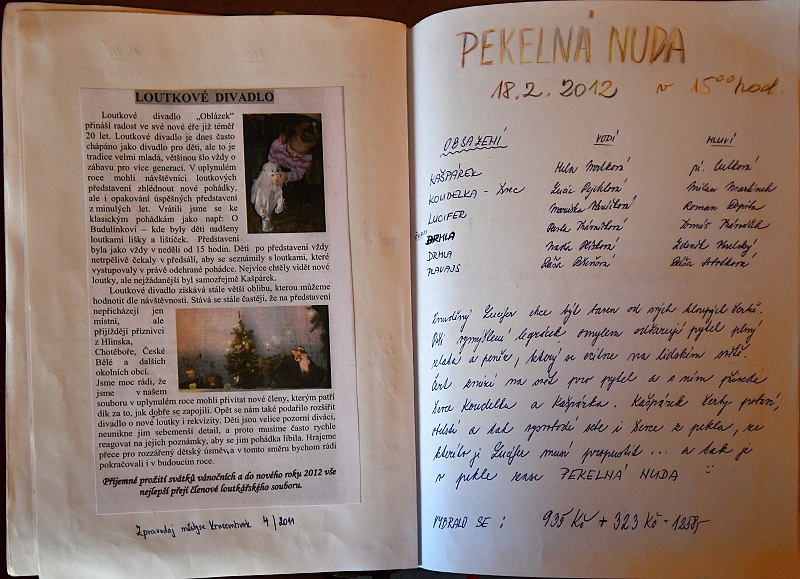 LOUTKOVÉ DIVADLO
Loutkové divadlo „Oblázek"
přináší radost ve své nové éře již téměř
20 let. Loutkové divadlo je dnes často
chápáno jako divadlo pro děti, ale to je
tradice velmi mladá, většinou šlo vždy o
zábavu pro více generací. V uplynulém
roce mohli návštěvníci loutkových
představení zhlédnout nové pohádky,
ale i opakování úspěšných představení
z minulých let. Vrátili jsme se ke
klasickým pohádkám jako např: O
Budulínkovi – kde byly děti nadšeny
loutkami lišky a lištiček. Představení
byla jako vždy v neděli od 15 hodin. Děti po představení vždy
netrpělivě čekaly v předsálí, aby se seznámily s loutkami, které
vystupovaly v právě odehrané pohádce. Nejvíce chtěly vidět nové
loutky, ale nejžádanější byl samozřejmě Kašpárek.
Loutkové divadlo získává stále větší oblibu, kterou můžeme
hodnotit dle návštěvnosti. Stává se stále častěji, že na představení
nepřicházejí jen
místní, ale
přijíždějí příznivci
z Hlinska,
Chotěboře, České
Bělé a dalších
okolních obcí.
Jsme moc rádi, že
jsme v našem
souboru v uplynulém roce mohli přivítat nové členy, kterým patří
dík za to, jak dobře se zapojili. Opět se nám také podařilo rozšířit
divadlo o nové loutky i rekvizity. Děti jsou velice pozorní diváci,
neunikne jim sebemenší detail, a proto musíme často rychle
reagovat na jejich poznámky, aby se jim pohádka líbila. Hrajeme
přece pro rozzářený dětský úsměv, a v tomto směru bychom rádi
pokračovali i v budoucím roce.
Příjemné prožití svátků vánočních a do nového roku 2012 vše
nejlepší přejí členové loutkářského souboru.
Zpravodaj městyse Krucemburk 4/2011
PEKELNÁ NUDA
18.2.2012 v 15⁰⁰ hod.
OBSAZENÍ VODÍ MLUVÍ
KAŠPÁREK
KOUDELKA - švec Lucie Milan
LUCIFER Roman
DRMLA
DRMLA Zdeněk
PLAVAJS
Lucifer chce být baven od svých hloupých čertů.
Při vymýšlení legrácek omylem odčarují pytel plný
zlata a peněz, který se ocitne na lidském světě.
Čert zmizí na svět pro pytel a s ním přivede
ševce Koudelku a Kašpárka. Kašpárek čerty
a tak sebe i ševce z pekla, ze
kterého je Lucifer musí propustit ... a tak je
v pekle zase PEKELNÁ NUDA
VYBRALO SE: 935 Kč + 323 Kč = 1258,-